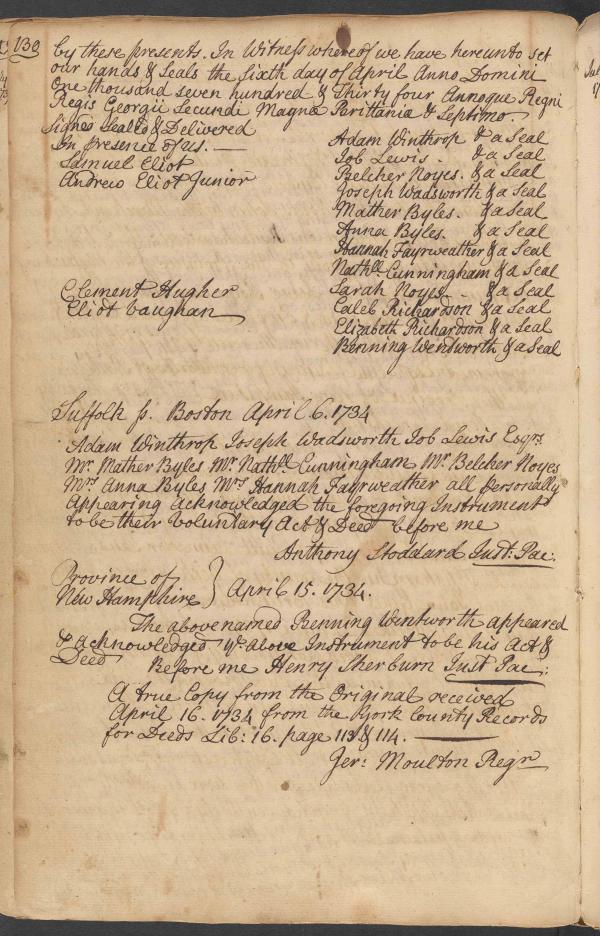 130
by these presents. In Witness whereof we have hereunto set
our hands & Seals the Sixth day of April Anno Domini
One thousand seven hundred & Thirty four Annoque Regni
Regis Georgii Secundi Magnæ Brittaniæ & Septimo.
Signed Sealed & Delivered
In presence of us.
Samuel Eliot
Andrew Eliot Junior
Adam Winthrop & a Seal
Job Lewis. & a Seal
Belcher Noyes. & a Seal
Joseph Wadsworth & a Seal
Mather Byles. & a Seal
Anna Byles. & a Seal
Hannah Fayrweather & a Seal
Nathll Cunningham & a Seal
Clement Hugher
Eliot Vaughan
Sarah Noyes & a Seal
Caleb Richardson & a Seal
Elizabeth Richardson & a Seal
Benning Wentworth & a Seal
Suffolk ss. Boston April 6. 1734
Adam Winthrop Joseph Wadsworth Job Lewis Esqrs
Mr Mather Byles Mr Nathll Cunningham Mr Belcher Noyes
Mrs Anna Byles Mrs Hannah Fayrweather all personally
Appearing acknowledged the foregoing Instrument
to be their Voluntary Act & Deed before me
Anthony Stoddard Just: Pac:
Province of
New Hampshire } April 15. 1734.
The abovenamed Benning Wentworth appeared
& acknowledged ye above Instrument to be his Act &
Deed Before me Henry Sherburn Just Pac:
A true Copy from the Original received
April 16. 1734 from the York County Records
for Deeds Lib: 16. page 113 & 114.
Jer: Moulton Regr